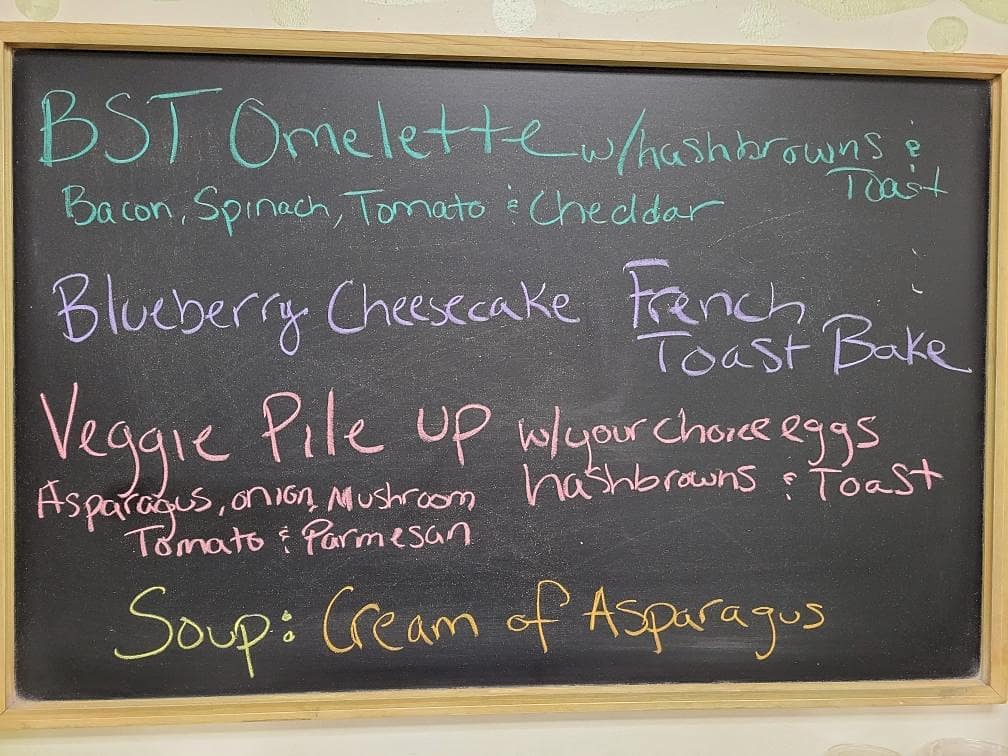 BST Omelette w/hashbrowns &
Toast
Bacon, Spinach, Tomato & Cheddar
Blueberry Cheesecake French
Toast Bake
Veggie Pile UP w/your choice eggs
hashbrowns & Toast
Asparagus, onion, Mushroom
Tomato & Parmesan
Soup: Cream of Asparagus